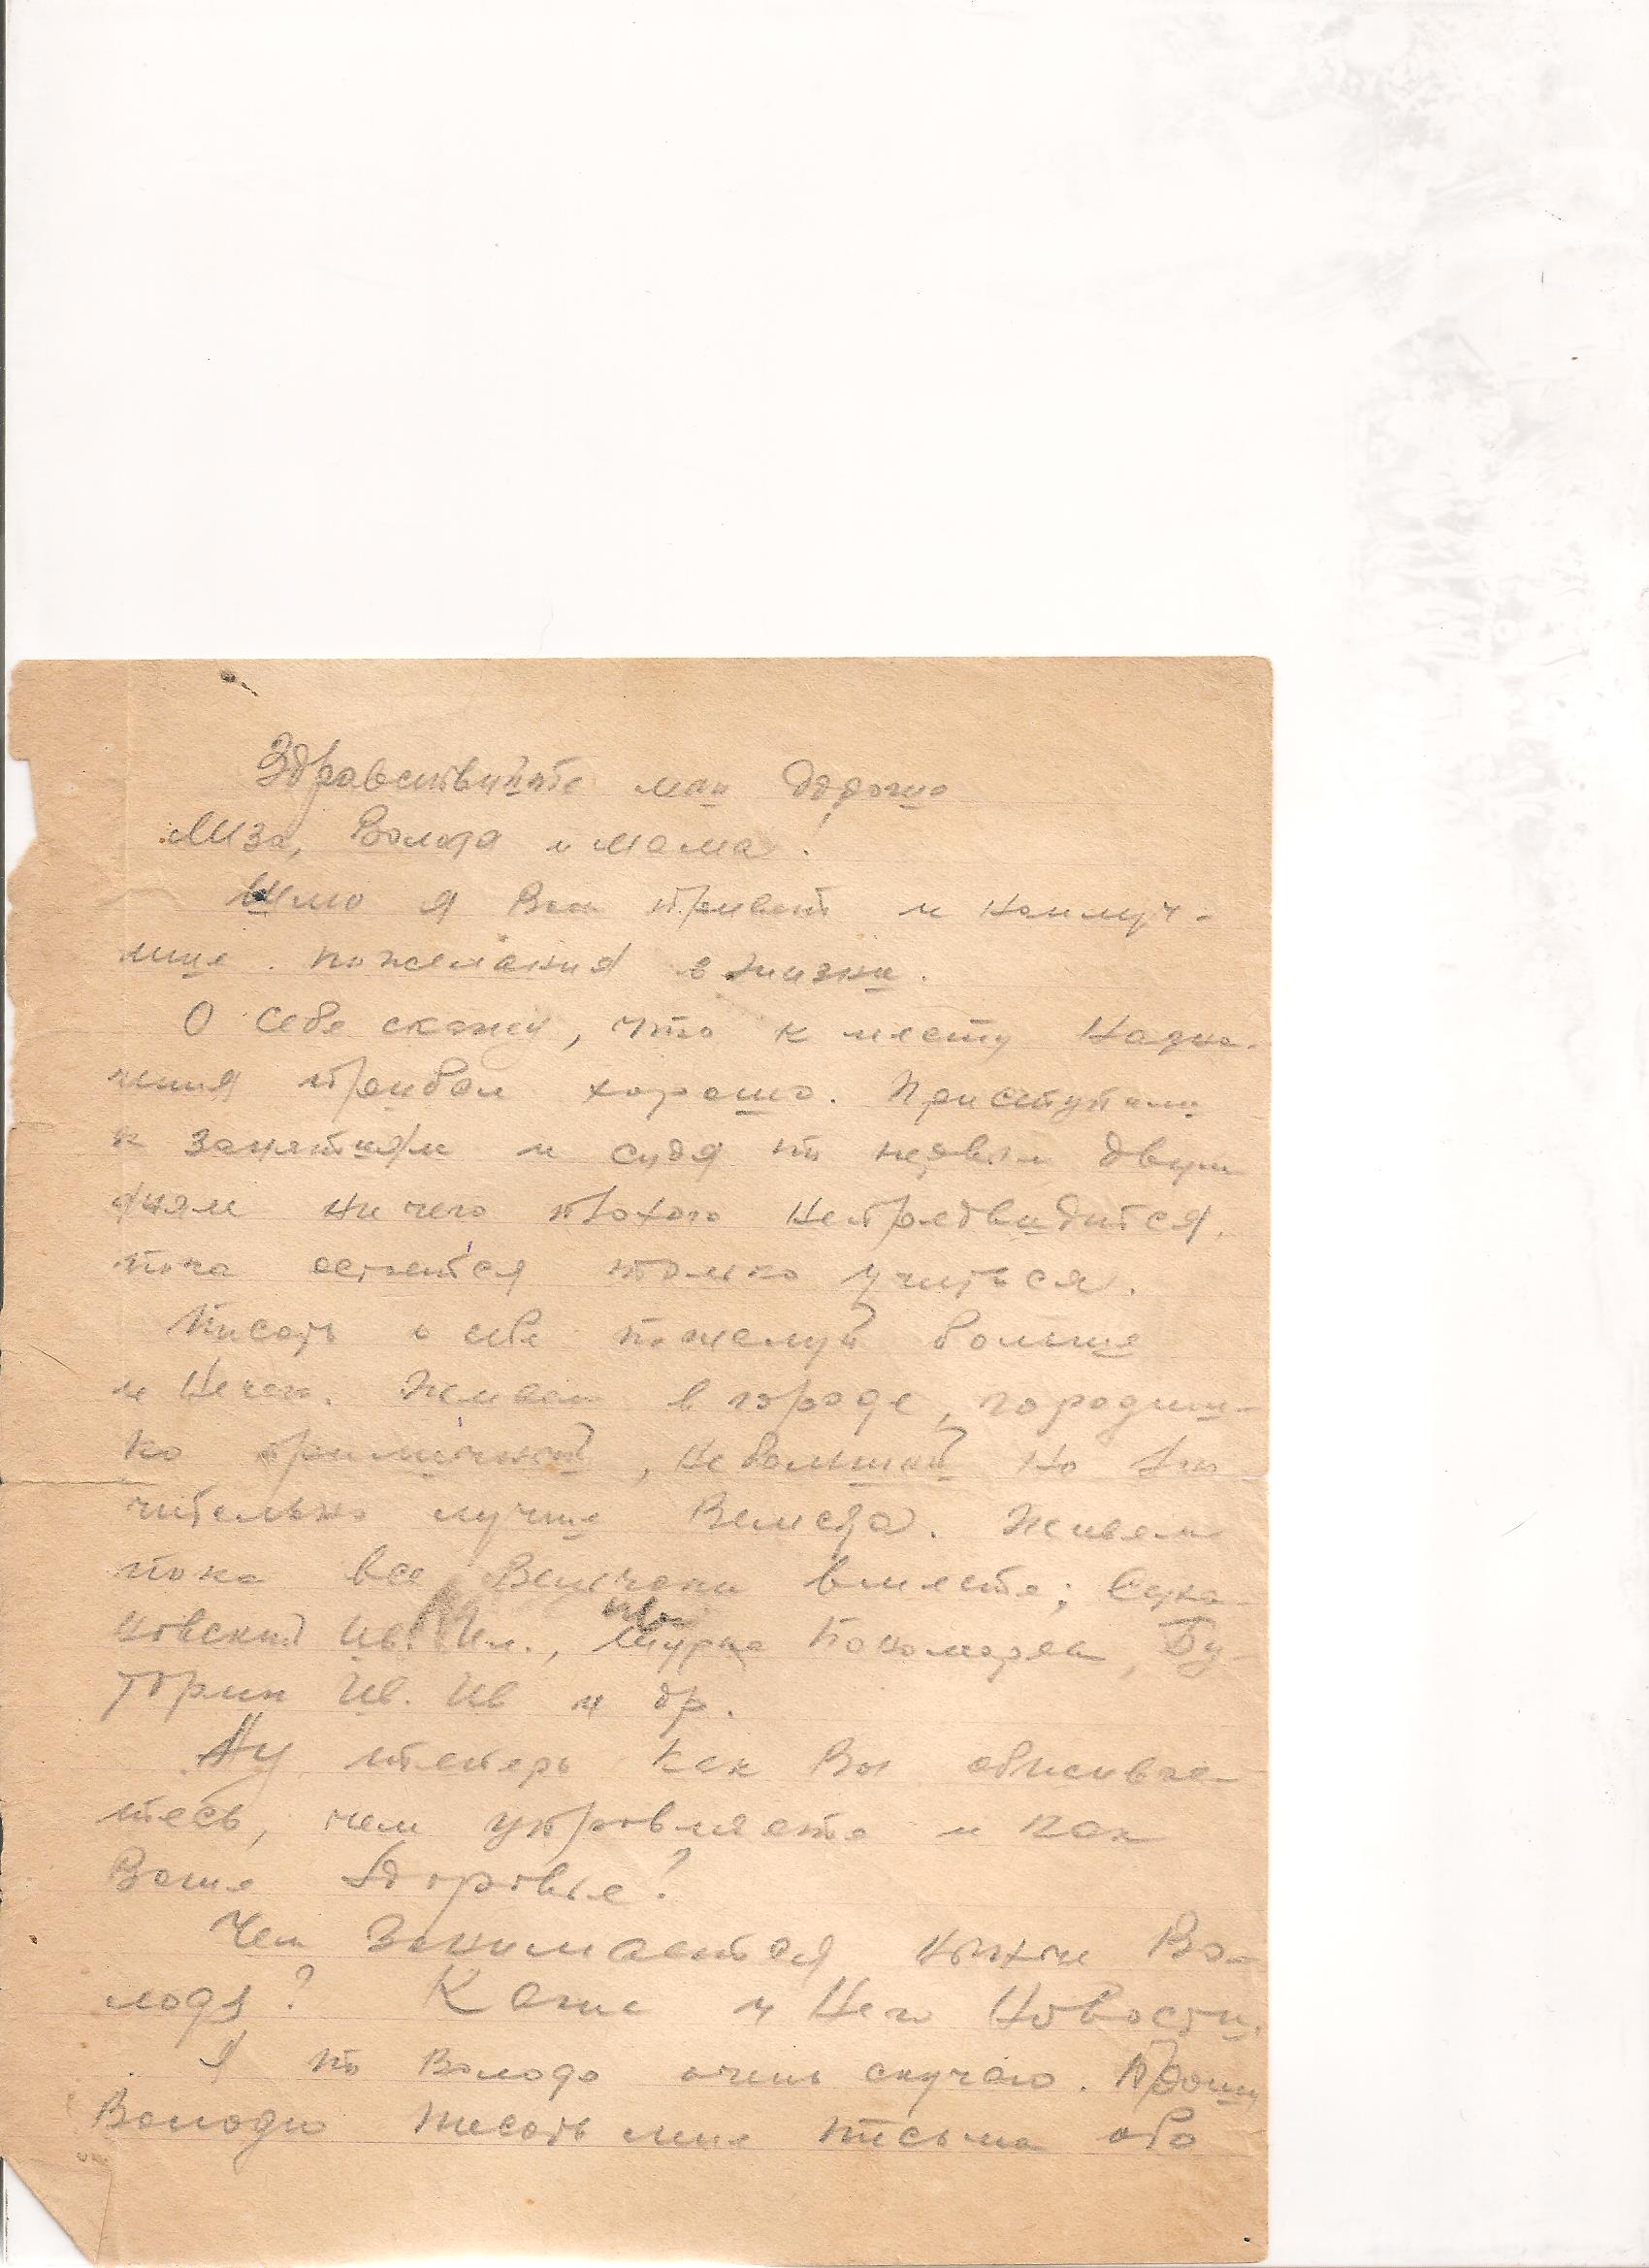 Здравствуйте мои дорогие
Лиза, Володя и мама!
Шлю я Вам привет и наилуч-
шие пожелания в жизни.
О себе скажу, что к месту назна-
чения прибыл хорошо. Приступили
к занятиям и судя по первым двум
дням ничего плохого непредвидится,
пока остается только учиться.
Писать о себе пожалуй больше
и нечего. Живем в городе, городиш-
ко приличный, небольшой но зна-
чительно лучше Вельска. Живем
пока все Вельчане вместе;
Ив. Ил., Шурка Пономарев, Бу-
торин Ив. Ив и др.
Ну теперь как Вы
тесь, чем управляете и как
Ваше здоровье?
Чем занимается Во-
лодя? Какие у Него Новости.
Я по Володе очень скучаю. Прошу
Володю писать мне письма обо